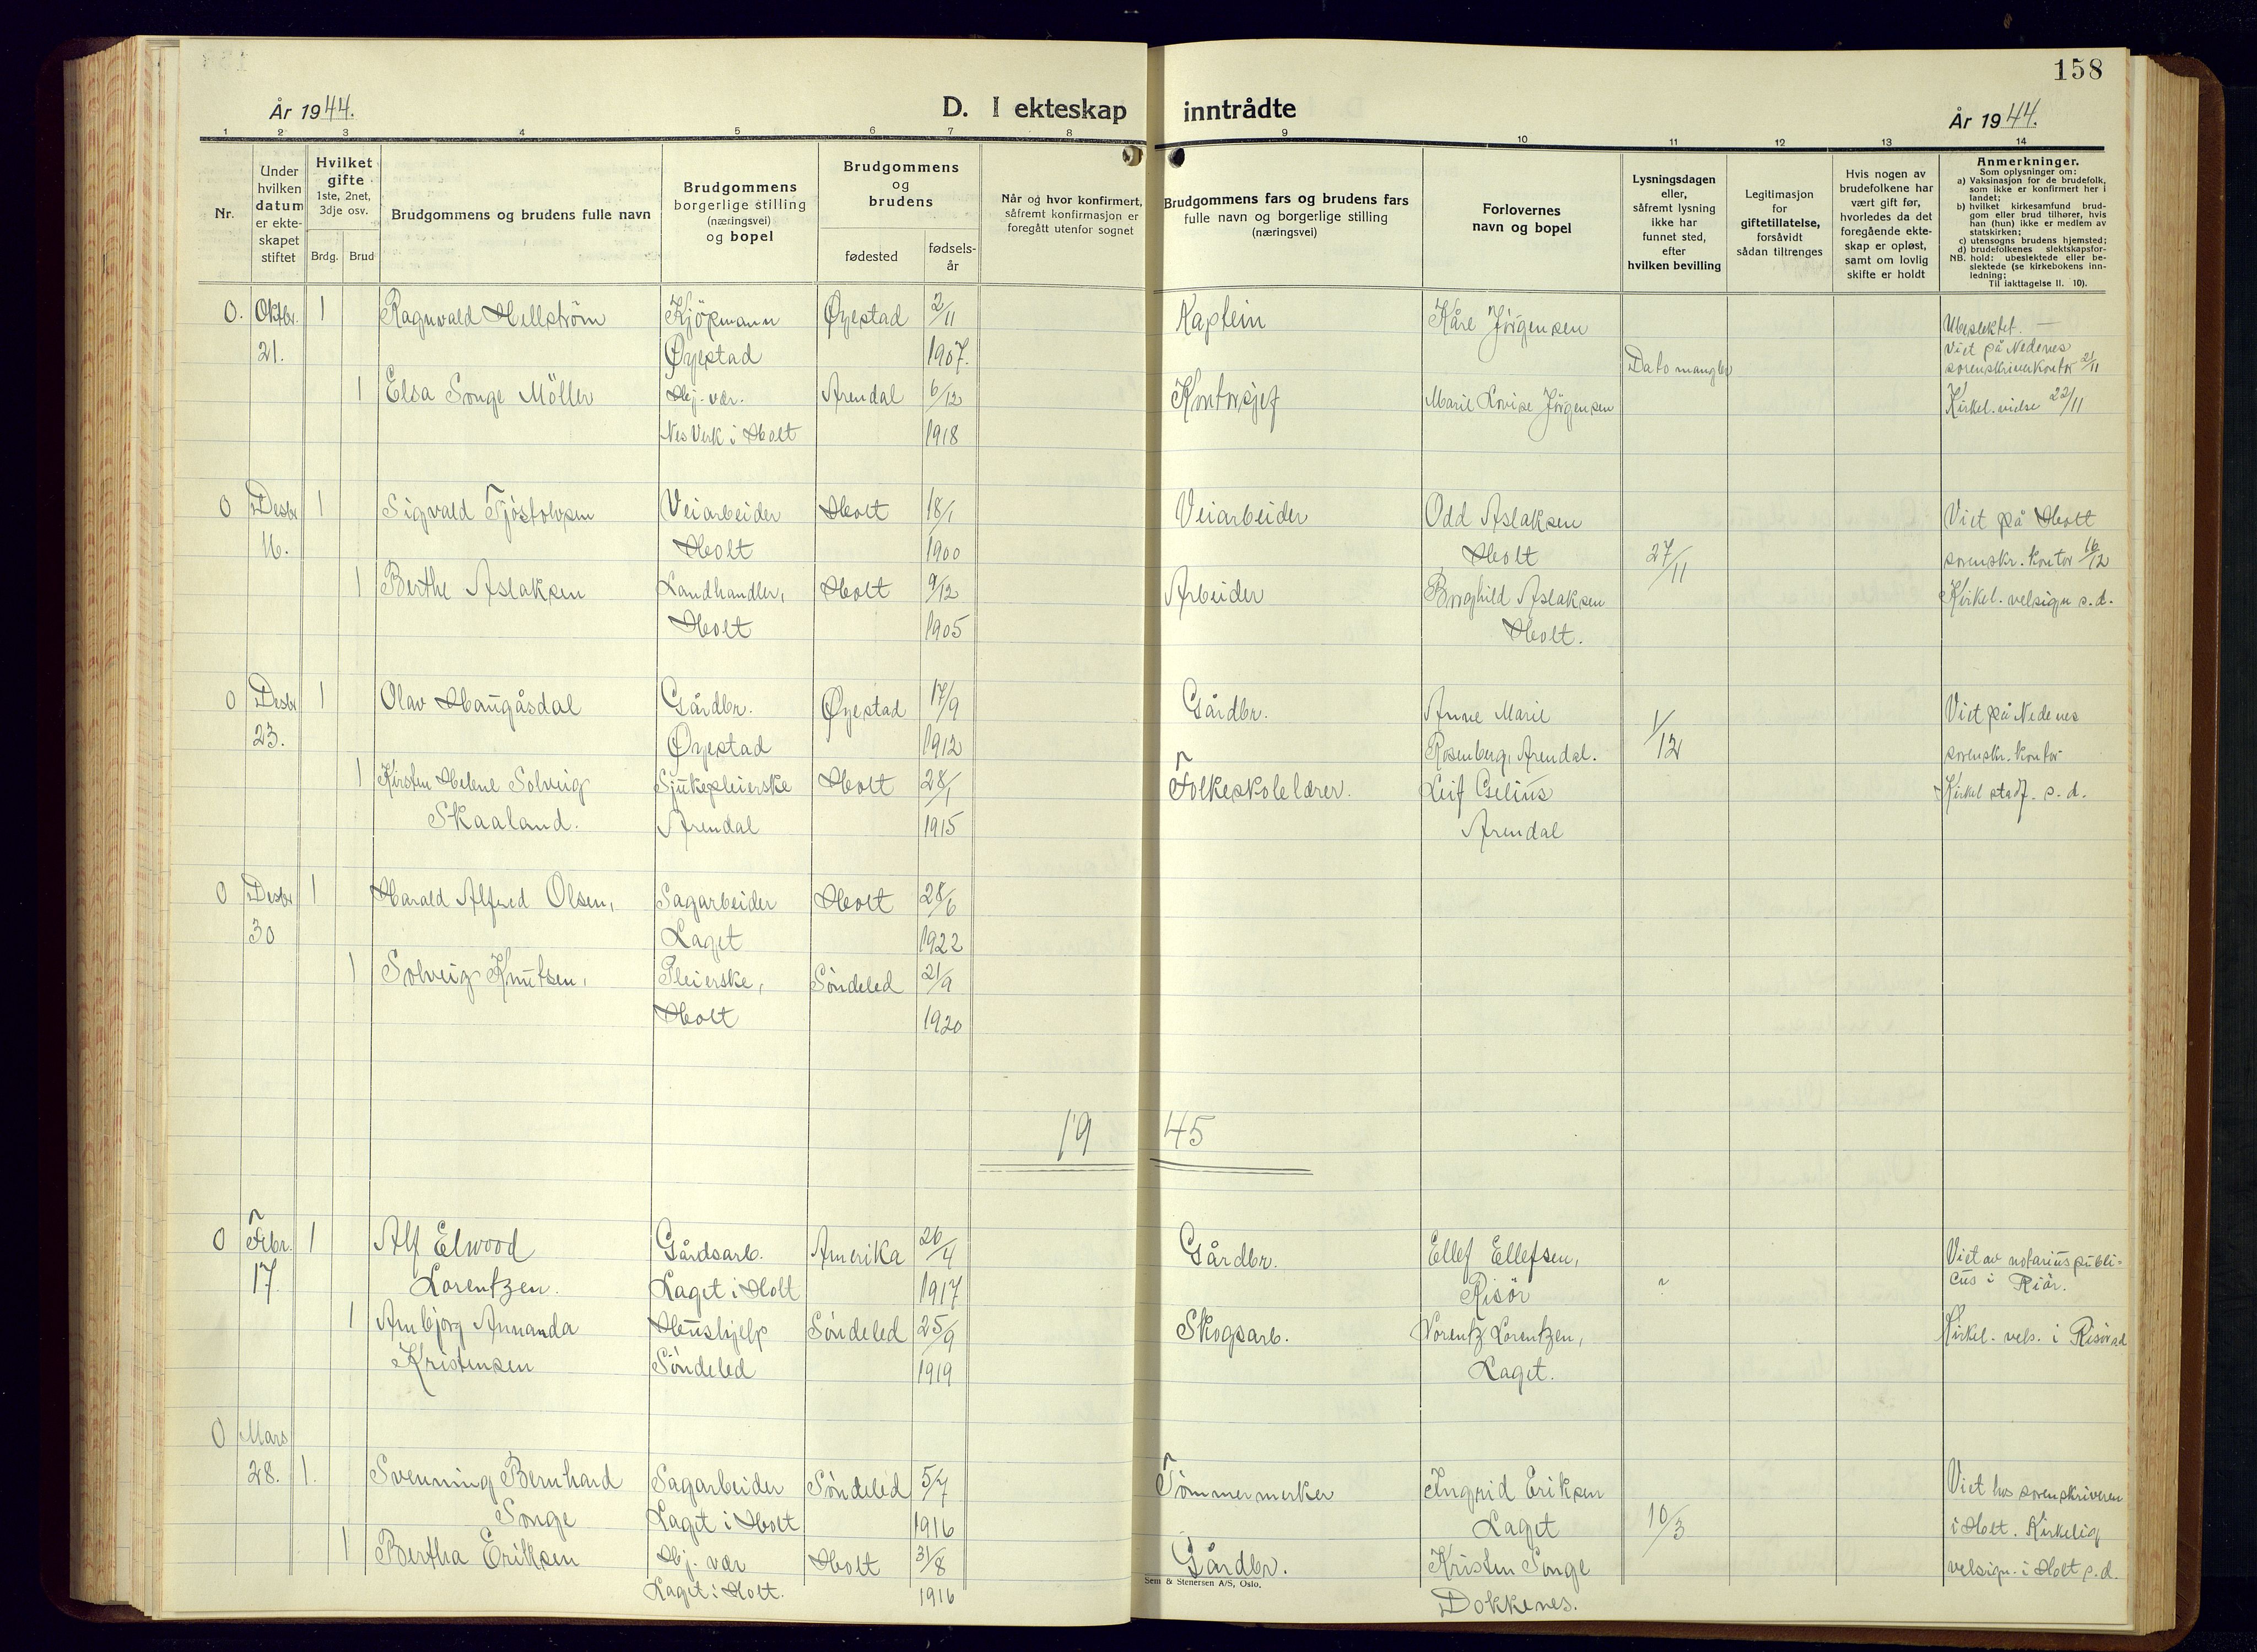 158
År 1944.
D. I ekteskap inntrådte
År 1944.
1 2 3 4 5 6 7 8 9 10 11 12 13 14
Nr.
Under hvilken datum er ekte-skapet stiftet
Hvilket gifte
1ste, 2net, 3dje osv.
Brdg. Brud
Brudgommens og brudens fulle navn
Brudgommens borgerlige stilling (næringsvei) og bopel
Brudgommens og brudens
fødested
fødsels-år
Når og hvor konfirmert, såfremt konfirmasjon er foregått utenfor sognet
Brudgommens fars og brudens fars fulle navn og borgerlige stilling (næringsvei)
Forlovernes navn og bopel
Lysningsdagen eller, såfremt lysning ikke har funnet sted, efter hvilken bevilling
Legitimasjon for giftetillatelse, forsåvidt sådan tiltrenges
Hvis nogen av brudefolkene har vært gift før, hvorledes da det foregående ekte-skap er opløst, samt om lovlig skifte er holdt
Anmerkninger.
Som oplysninger om:
a) Vaksinasjon for de brudefolk, som ikke er konfirmert her i landet;
b) hvilket kirkesamfund brud-gom eller brud tilhører, hvis han (hun) ikke er medlem av statskirken;
c) utensogns brudens hjemsted;
d) brudefolkenes slektskapsfor-hold: ubeslektede eller be-slektede (se kirkebokens inn-ledning;
NB. Til iakttagelse II. 10).
0. Oktbr. 1 Ragnvald Hellström Kjöpmann Øyestad 2/11 Kaptein Kåre Jörgensen Ubeslektet. —
21. Øyestad 1907. Dato mangler Viet på Nedenes sorenskriverkontor 21/11
1 Elsa Songe Möller Hj. vær. Arendal 6/12 Kontorsjef Marie Lovise Jörgensen Kirkel. vielse 22/11
Nes Verk i Holt 1918
0 Desbr 1 Sigvald Tjöstolvsen Veiarbeider Holt 18/1 Veiarbeider Odd Aslaksen Viet på Holt
16. Holt 1900 Holt 27/11 sorenskr. kontor 16/12
1 Berthe Aslaksen Landhandler, Holt 9/12 Arbeider Borghild Aslaksen Kirkel. velsign s.d.
Holt 1905 Holt.
0 Desbr 1 Olav Haugåsdal Gårdbr. Øyestad 17/9 Gårdbr. Anne Marie 1/12 Viet på Nedenes
23. Øyestad 1912 Rosenberg, Arendal. sorenskr. kontor
1 Kirsten Helene Solveig Sjukepleierske Holt 28/1 Folkeskolelærer. Leif Gselius Kirkel stadf. s.d.
Skaaland. Arendal 1915 Arendal
0 Desbr 1 Harald Alfred Olsen, Sagarbeider Holt 28/6
30 Laget 1922
1 Solveig Knutsen, Pleierske, Söndeled 21/9
Holt 1920
1945
0 Febr. 1 Alf Elwood Gårdsarb. Amerika 26/4 Gårdbr. Ellef Ellefsen, Viet av notarius publi-
17. Lorentzen. Laget i Holt 1917 Risör ? cus i Riör.
1 Arnbjörg Annanda Hushjelp Söndeled 25/9 Skogsarb. Lorentz Lorentzen, Kirkel. vels. i Risör sd
Kristensen Söndeled 1919 Laget.
0 Mars
28. 1. Svenning Bernhard Sagarbeider Söndeled 5/7 Tömmermerker Ingrid Eriksen Viet hos sorenskriveren
Songe Laget i Holt 1916 Laget 10/3 i Holt. Kirkelig
1 Bertha Eriksen Hj. vær Holt 31/8 Gårdbr. Kristen Songe velsign. i Holt s.d.
Laget i Holt. 1916 Dokkenes.
Sem & Stenersen A/S, Oslo.